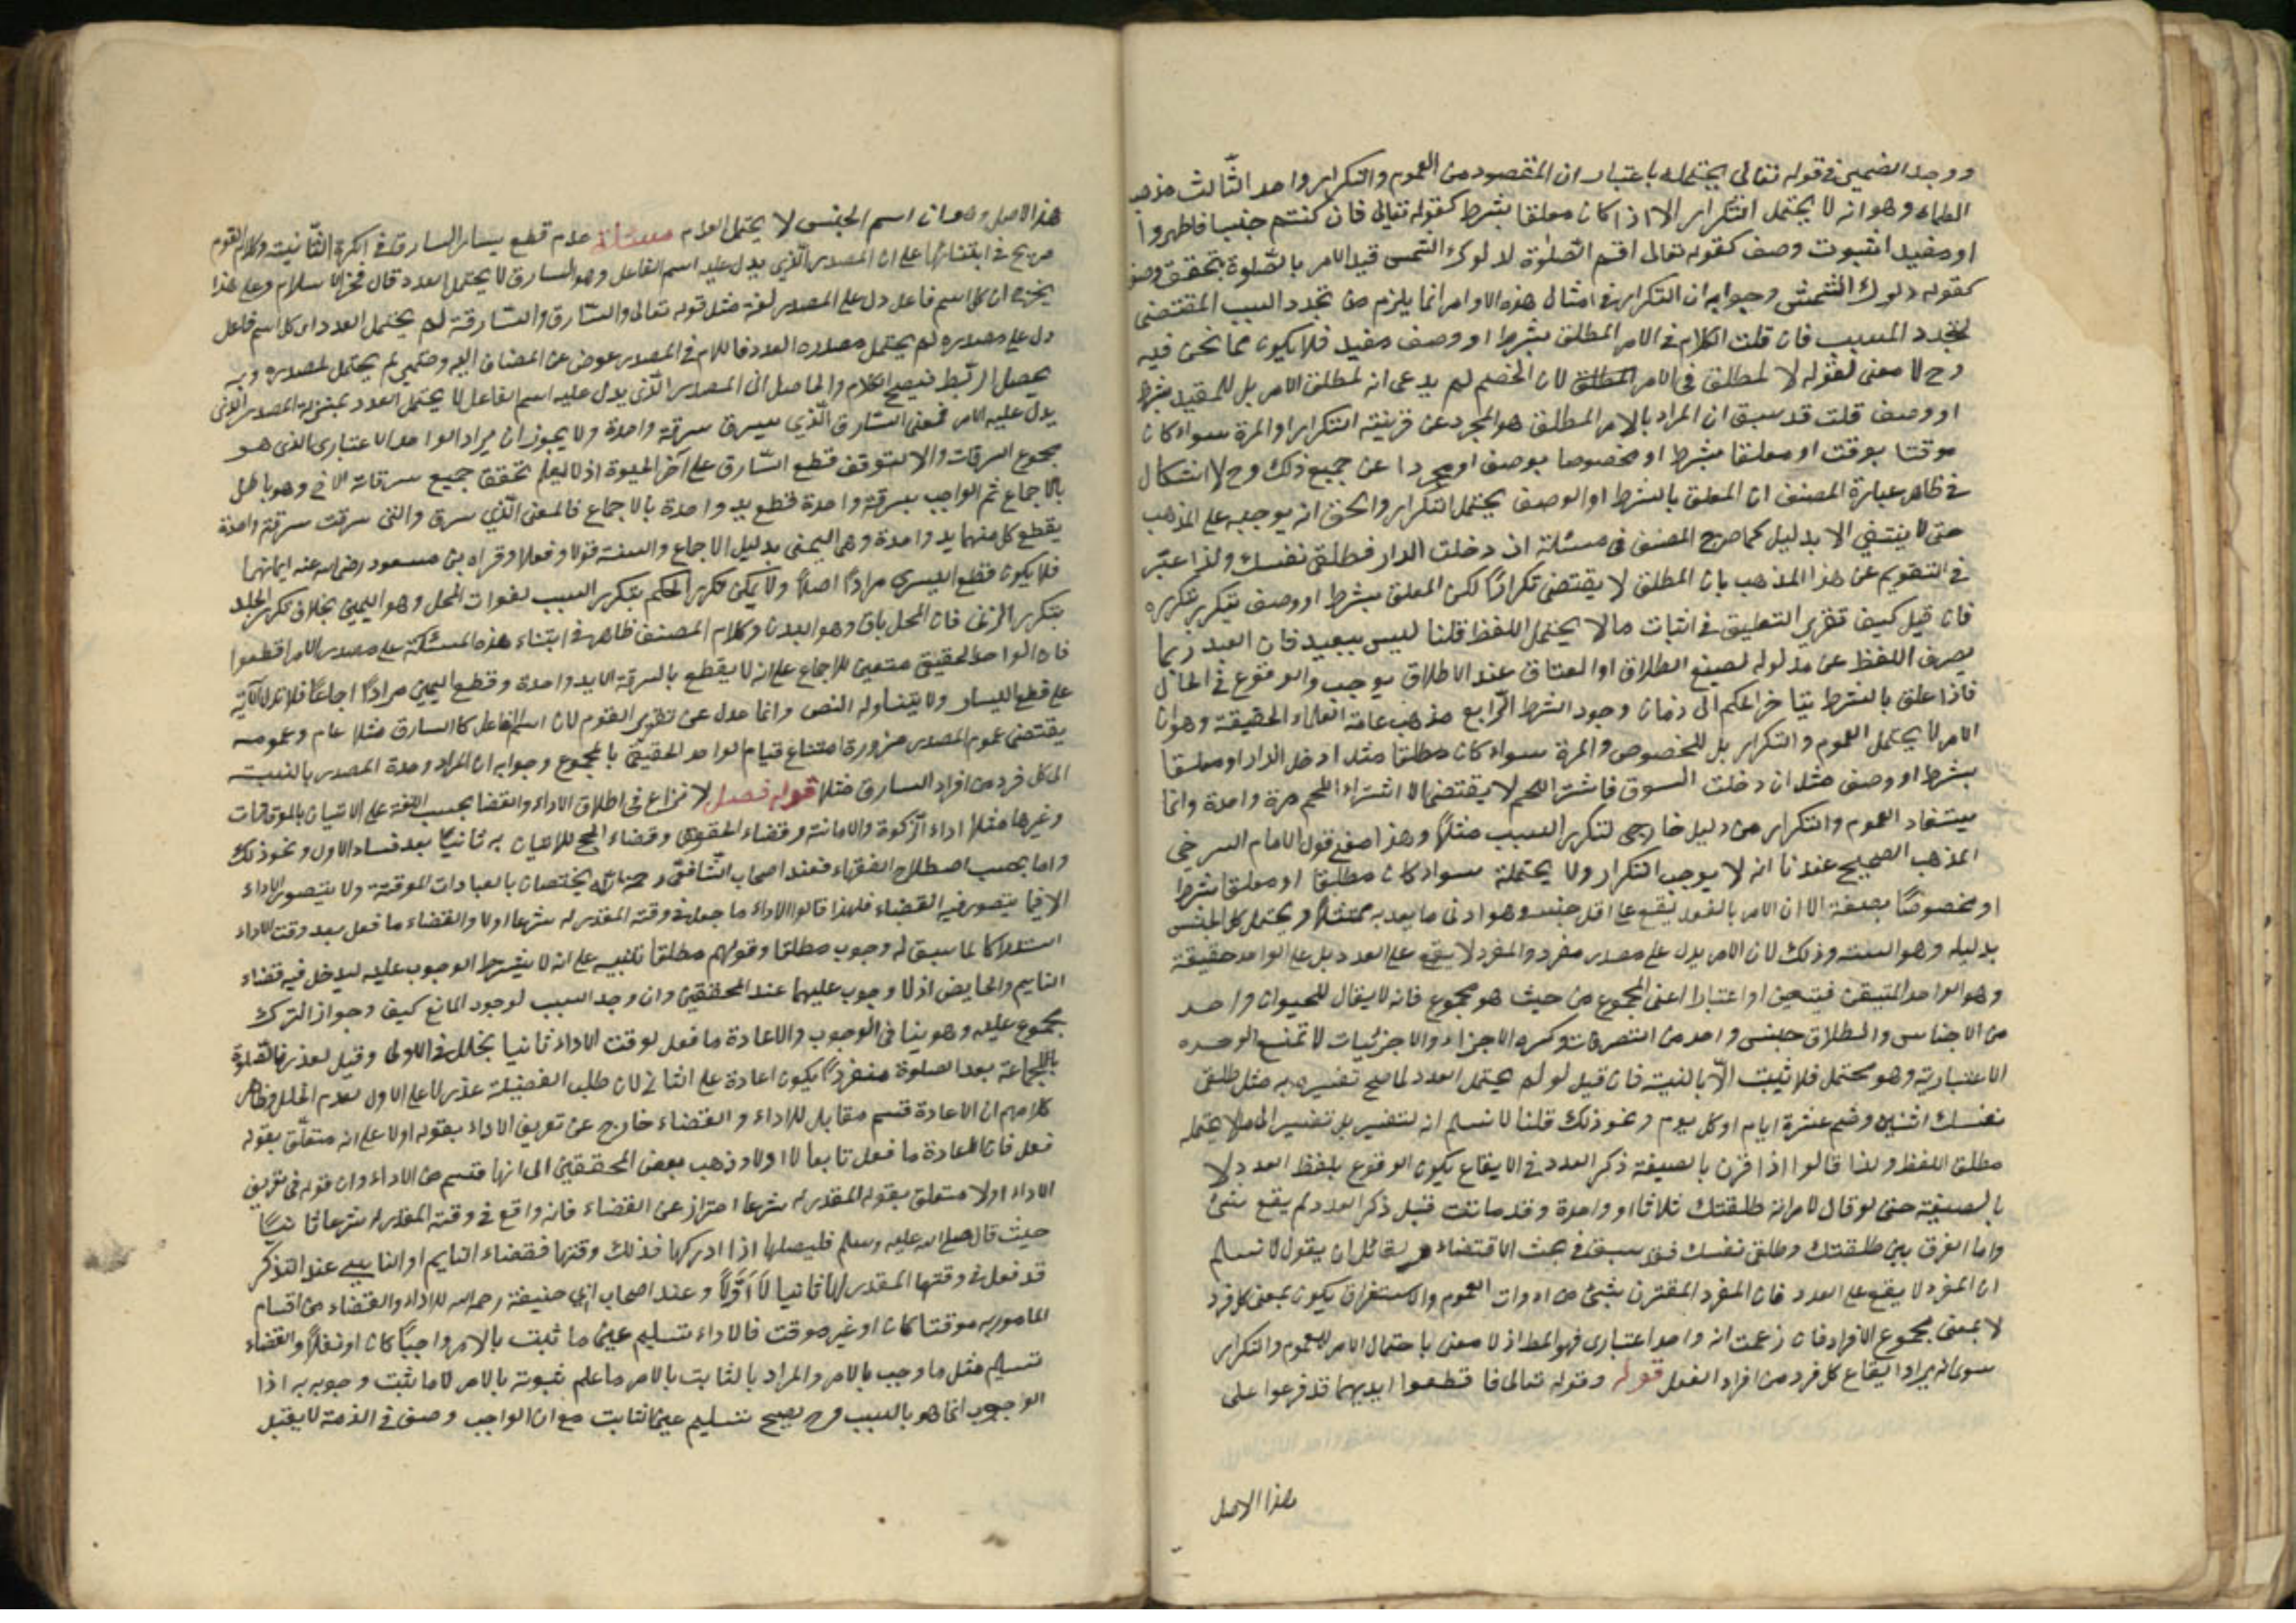 ووجد الضمير في قوله تعالى يحتمله باعتبار ان المقصود من العموم والتكرار واحد الثالث مذهب
العلماء وهو انه لا يحتمل التكرار الا اذا كان معلقا بشرط كقوله تعالى فان كنتم جنبا فاطهروا
او مقيد الثبوت وصف كقوله تعالى اقم الصلوة لدلوك الشمس قيد الامر بالصلوة بتحقق وصف
كقوله دلوك الشمس وجوابه ان التكرار في امثال هذه الاوامر انما يلزم من تجدد السبب المقتضى
لتجدد المسبب فان قلت الكلام في الامر المطلق بشرط او وصف مقيد فلا يكون مما نحن فيه
وح لا معنى لقوله لا لمطلق في الامر المطلق لان الخصم لم يدعى انه لمطلق الامر بل للمقيد بشرط
او وصف قلت قد سبق ان المراد بالامر المطلق هو المجرد عن قرينة التكرار او المرة سواء كان
موقتا بوقت او معلقا بشرط او مخصوصا بوصف او مجردا عن جميع ذلك وح لا اشكال
في ظاهر عبارة المصنف ان المعلق بالشرط او الوصف يحتمل التكرار والحق انه يوجبه على المذهب
حتى لا ينتفي الا بدليل كما صرح المصنف في مسئلة ان دخلت الدار فطلقى نفسك ولذا عبّر
في التقويم عن هذا المذهب بان المطلق لا يقتضى تكرارًا لكن المعلق بشرط او وصف يتكرر بتكرره
فان قيل كيف تقرير التعليق في اثبات ما لا يحتمل اللفظ قلنا ليس ببعيد فان العبد ربما
يصرف اللفظ عن مدلوله لصيغ الطلاق او العتاق عند الاطلاق يوجب والوقوع في الحال
فاذا علق بالشرط يتاخر الحكم الى زمان وجود الشرط الرابع مذهب عامة العلماء الحقيقة وهو ان
الامر لا يحتمل العموم والتكرار بل للخصوص والمرة سواء كان مطلقا مثل ادخل الدار او معلقا
بشرط او وصف مثل ان دخلت السوق فاشتر اللحم لا يقتضى الا اشتراء اللحم مرة واحدة وانما
يستفاد العموم والتكرار من دليل خارجى لتكرر السبب مثلًا وهذا معنى قول الامام السرخسى
المذهب الصحيح عندنا انه لا يوجب التكرار ولا يحتمله سواء كان مطلقا او معلقا بشرط
او مخصوصًا بصفة الا ان الامر بالفعل يقع على اقل جنسه وهو ادنى ما يعد به ممتثلًا ويحتمل كل الجنس
بدليله وهو النية وذلك لان الامر يدل على مصدر مفرد والمفرد لا يقع على العدد بل على الواحد حقيقة
وهو الواحد المتيقن فيتعين او اعتبارا اعنى المجموع من حيث هو مجموع فانه لا يقال للحيوان واحد
من الاجناس والطلاق جنس واحد من التصرفات وكثرة الاجزاء والاجزئيات لا تمنع الوحدة
الاعتبارية وهو محتمل فلا يثبت الّا بالنية فان قيل لو لم يحتمل العدد لما صح تفسيره به مثل طلقى
نفسك اثنين وضم عشرة ايام او كل يوم ونحو ذلك قلنا لا نسلم انه لتفسير بل تغيير الى ما لا يحتمله
مطلق اللفظ ولذا قالوا اذا قرن بالصيغة ذكر العدد في الايقاع يكون الوقوع بلفظ العدد لا
بالصيغة حتى لو قال لامراته طلقتك ثلاثا او واحدة وقد ماتت قبل ذكر العدد لم يقع شئ
واما الفرق بين طلقتك وطلقى نفسك فقد سبق في بحث الاقتضاء ولقائل ان يقول لا نسلم
ان المفرد لا يقع على العدد فان المفرد المقترن بشئ من ادوات العموم والاستغراق يكون بمعنى كل فرد
لا بمعنى مجموع الافراد فان زعمت انه واحد اعتبارى فهو المط اذ لا معنى باحتمال الامر للعموم والتكرار
سوى انه يراد ايقاع كل فرد من افراد الفعل قوله وقوله تعالى فاقطعوا ايديهما قد فرعوا على
هذا الاصل
هذا الاصل وهو ان اسم الجنس لا يحتمل العدد مسئلة عدم قطع يسار السارق في الكرة الثانية وكلام القوم
صريح في ابتنائها على ان المصدر الذي يدل عليه اسم الفاعل وهو السارق لا يحتمل العدد قال فخر الاسلام وعلى هذا
يخرج ان كل اسم فاعل دل على المصدر لغة مثل قوله تعالى والسارق والسارقة لم يحتمل العدد اى كل اسم فاعل
دل على مصدره لم يحتمل مصدره العدد فاللام في المصدر عوض عن المضاف اليه وضمير لم يحتمل لمصدره وبه
يحصل الربط فيصح الكلام والحاصل ان المصدر الذي يدل عليه اسم الفاعل لا يحتمل العدد بمنزلة المصدر الذى
يدل عليه الامر فمعنى السارق الذي يسرق سرقة واحدة ولا يجوز ان يراد الواحد الاعتبارى الذى هو
مجموع السرقات والا لتوقف قطع السارق على آخر الحيوة اذ لا يعلم تحقق جميع سرقاته الا ح وهو باطل
بالاجماع ثم الواجب بسرقة واحدة قطع يد واحدة بالاجماع فالمعنى الذي سرق والتى سرقت سرقة واحدة
يقطع كل منهما يد واحدة وهى اليمنى بدليل الاجماع والسنة قولا وفعلا وقراه بن مسعود رضى الله عنه ايمانهما
فلا يكون قطع اليسرى مرادًا اصلًا ولا يمكن تكرر الحكم بتكرر السبب لفوات المحل وهو اليمين بخلاف تكرر الجلد
بتكرر الزنى فان المحل باق وهو البدن وكلام المصنف ظاهر في ابتناء هذه المسئلة على مصدر الامر اقطعوا
فان الواحد الحقيقى متعين للاجماع على انه لا يقطع بالسرقة الا يد واحدة وقطع اليمين مرادًا اجماعًا فلا تدل الآية
على قطع اليسار ولا يتناوله النص وانما عدل عن تقرير القوم لان اسم الفاعل كالسارق مثلا عام وعمومه
يقتضى عموم المصدر ضرورة امتناع قيام الواحد الحقيقى بالمجموع وجوابه ان المراد وحدة المصدر بالنسبة
الى كل فرد من افراد السارق مثلا قوله فصل لا نزاع في اطلاق الاداء والقضا بحسب اللغة على الاتيان بالموقتات
وغيرها مثلًا اداء الزكوة والامانة وقضاء الحقوق وقضاء الحج للاتيان به ثانيًا بعد فساد الاول ونحو ذلك
واما بحسب اصطلاح الفقهاء فعند اصحاب الشافعى رحمة الله يختصان بالعبادات الموقتة ولا يتصور الاداء
الا فيما يتصور فيه القضاء فلهذا قالوا الاداء ما فعل في وقته المقدر له شرعا اولا والقضاء ما فعل بعد وقت الاداء
استدراكا لما سبق له وجوب مطلقا وقولهم مطلقا تنبيه على انه لا يشترط الوجوب عليه ليدخل فيه قضاء
النايم والحايض اذ لا وجوب عليهما عند المحققين وان وجد السبب لوجود المانع كيف وجواز الترك
مجموع عليه وهو ينافى الوجوب والاعادة ما فعل لوقت الاداء ثانيا بخلل في الاولى وقيل لعذر فالصلوة
بالجماعة بعد الصلوة منفردًا يكون اعادة على الثانى لان طلب الفضيلة عذر لا على الاول لعدم الخلل وظاهر
كلامهم ان الاعادة قسم مقابل للاداء والقضاء خارج عن تعريف الاداء بقوله اولا على انه متعلق بقوله
فعل فان الاعادة ما فعل ثانيا لا اولا وذهب بعض المحققين الى انها قسم من الاداء وان قوله في تعريف
الاداء اولا متعلق بقوله المقدر له شرعا احتراز عن القضاء فانه واقع في وقته المقدر له شرعا ثانيًا
حيث قال صلى الله عليه وسلم فليصلها اذا ادركها فذلك وقتها فقضاء النايم او الناسى عند التذكر
قد فعل في وقتها المقدر لها ثانيا لا اوّلًا وعند اصحاب ابى حنيفة رحمه الله الاداء والقضاء من اقسام
المامور به موقتا كان او غير موقت فالاداء تسليم عين ما ثبت بالامر واجبًا كان او نفلًا والقضاء
تسليم مثل ما وجب بالامر والمراد بالثابت بالامر ما علم ثبوته بالامر لا ما ثبت وجوبه به اذا
الوجوب انما هو بالسبب وح يصح تسليم عين الثابت مع ان الواجب وصف في الذمة لا يقبل